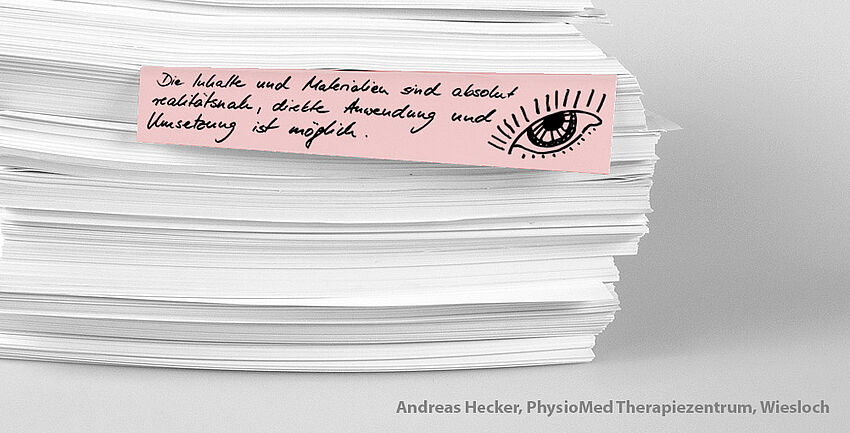 Die Inhalte und Materialien sind absolut
realitätsnah, direkte Anwendung und
Umsetzung ist möglich.
Andreas Hecker, PhysioMed Therapiezentrum, Wiesloch